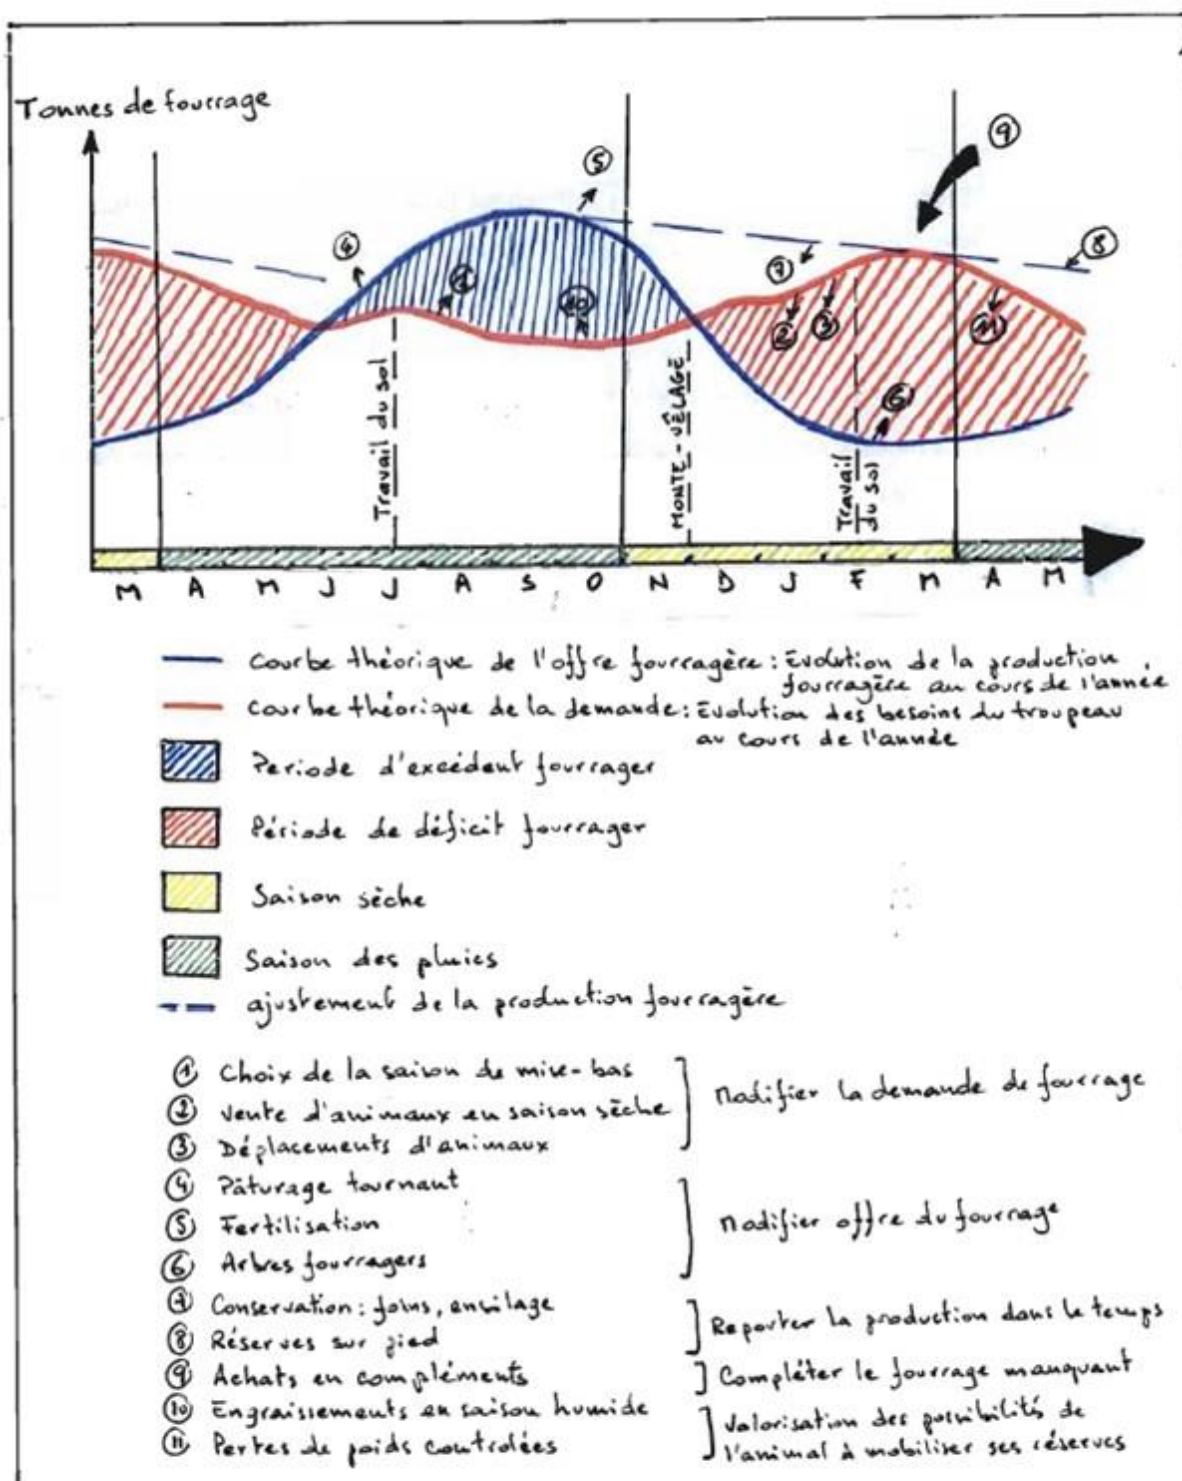 Tonnes de fourrage
⑤
⑨
④
①
⑩
⑦
⑧
②
③
⑪
⑥
Travail du sol
MONTE - VÊLAGE
Travail
du sol
M A M J J A S O N D J F M A M
Courbe théorique de l'offre fourragère : Évolution de la production
fourragère au cours de l'année
Courbe théorique de la demande : Évolution des besoins du troupeau
au cours de l'année
Période d'excédent fourrager
Période de déficit fourrager
Saison sèche
Saison des pluies
ajustement de la production fourragère
① Choix de la saison de mise-bas
② Vente d'animaux en saison sèche
③ Déplacements d'animaux
Modifier la demande de fourrage
④ Pâturage tournant
⑤ Fertilisation
⑥ Arbres fourragers
Modifier offre du fourrage
⑦ Conservation : foins, ensilage
⑧ Réserves sur pied
Reporter la production dans le temps
⑨ Achats en compléments
Compléter le fourrage manquant
⑩ Engraissements en saison humide
⑪ Pertes de poids controlées
Valorisation des possibilités de
l'animal à mobiliser ses réserves